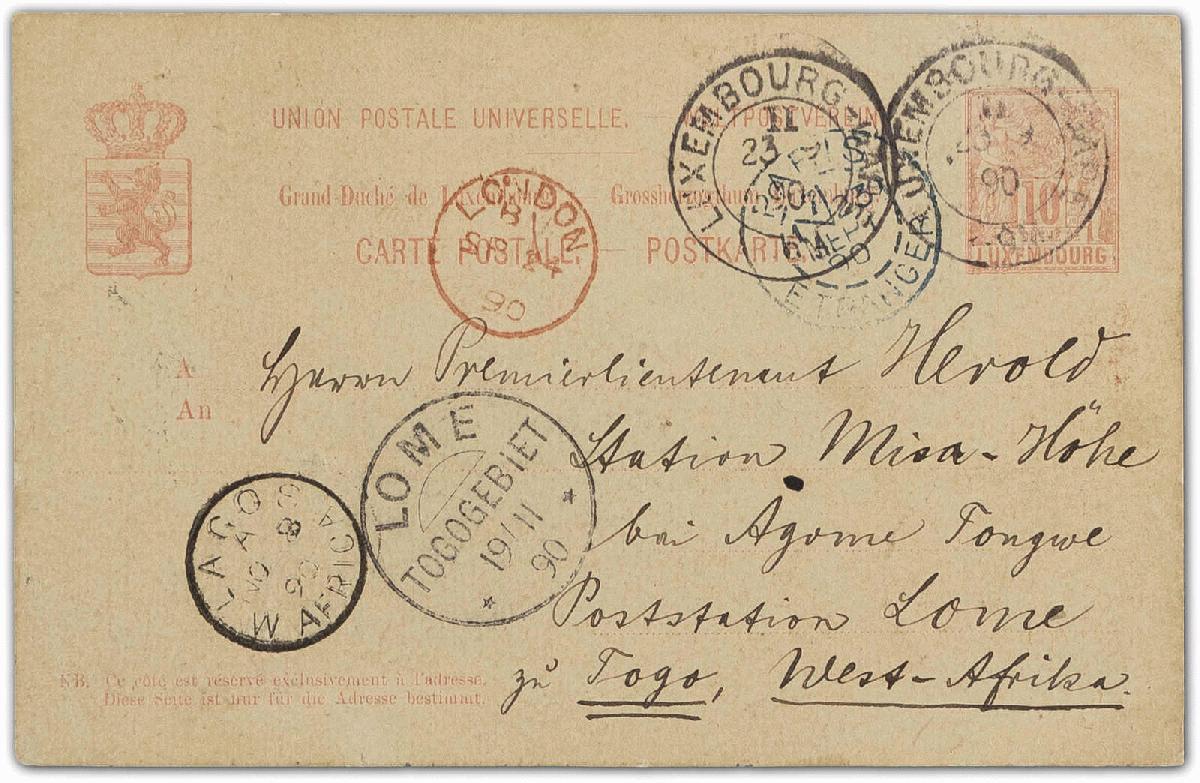 UNION POSTALE UNIVERSELLE. WELTPOSTVEREIN
Grand-Duché de Luxembourg. Grossherzogthum
CARTE POSTALE. POSTKARTE.
10
LUXEMBOURG
LUXEMBOURG-GARE
11
23 9
90
LUXEMBOURG-GARE
11
23 9
90
ETRANGER
90
LONDON
90
A
An
Herrn Premierlieutenant Herold
Station Misa-Höhe
bei Agome Tongwe
Poststation Lome
zu Togo, West-Afrika.
LOME
TOGOGEBIET
19/11
90
LAGOS
A
NO 8
90
W AFRICA
NB. Ce côté est réservé exclusivement à l'adresse.
Diese Seite ist nur für die Adresse bestimmt.